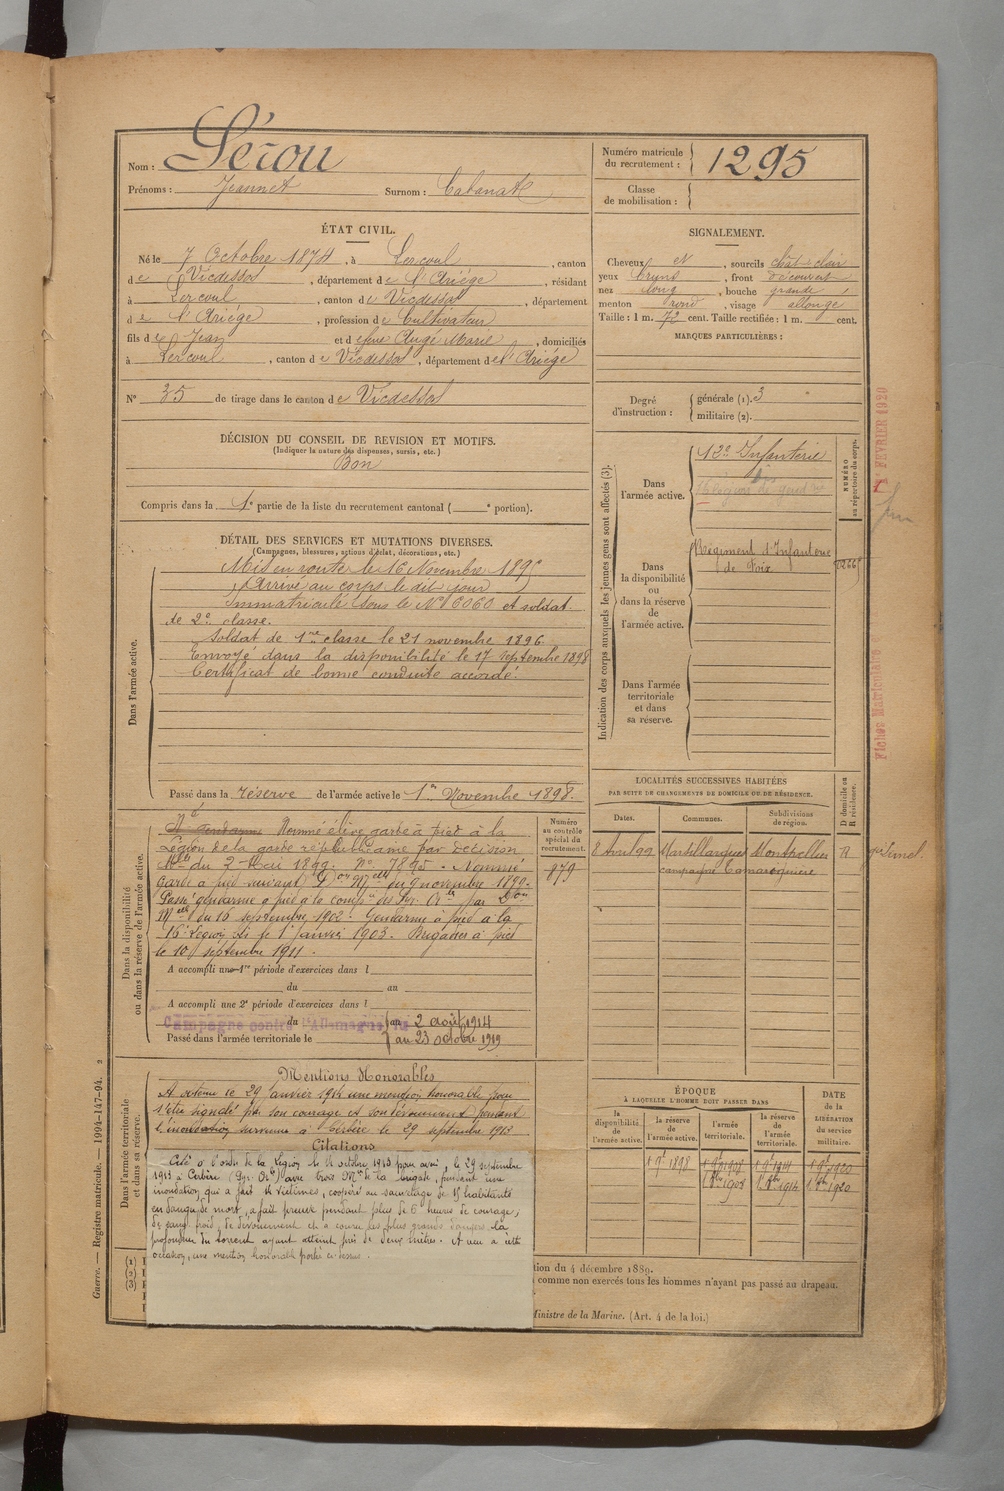 Nom : Lérou
Prénoms : Jeannet Surnom : Cabanat
Numéro matricule du recrutement : 1295
Classe de mobilisation :
ÉTAT CIVIL.
Né le 7 Octobre 1874, à Lercoul, canton
de Vicdessos, département de l'Ariège, résidant
à Lercoul, canton de Vicdessos, département
de l'Ariège, profession de Cultivateur
fils de Jean et de feue Auge Marie, domiciliés
à Lercoul, canton de Vicdessos, département de l'Ariège
N° 35 de tirage dans le canton de Vicdessos
SIGNALEMENT.
Cheveux et, sourcils chât-clair
yeux bruns, front découvert
nez long, bouche grande
menton rond, visage allongé
Taille : 1 m. 72 cent. Taille rectifiée : 1 m. cent.
MARQUES PARTICULIÈRES :
Degré d'instruction : générale (1). 3
militaire (2).
DÉCISION DU CONSEIL DE REVISION ET MOTIFS.
(Indiquer la nature des dispenses, sursis, etc.)
Bon
Compris dans la 1e partie de la liste du recrutement cantonal ( e portion).
DÉTAIL DES SERVICES ET MUTATIONS DIVERSES.
(Campagnes, blessures, actions d'éclat, décorations, etc.)
Dans l'armée active.
Mis en route le 16 Novembre 1895
Arrivé au corps le dit jour
Immatriculé sous le N° 6060 et soldat
de 2e classe.
Soldat de 1re classe le 21 novembre 1896.
Envoyé dans la disponibilité le 17 septembre 1898
Certificat de bonne conduite accordé.
Passé dans la réserve de l'armée active le 1er Novembre 1898.
Indication des corps auxquels les jeunes gens sont affectés (3).
NUMÉRO au répertoire du corps.
Dans l'armée active.
12e Infanterie
Dans la disponibilité ou dans la réserve de l'armée active.
Régiment d'Infanterie
de Foix
Dans l'armée territoriale et dans sa réserve.
1er FÉVRIER 1920
Fiches Matriculaire
Dans la disponibilité ou dans la réserve de l'armée active.
Numéro au contrôle spécial du recrutement.
879
Nommé élève garde à pied à la
Légion de la garde républicaine par décision
Mlle du 2 Mai 1899. N° 7895 - Nommé
Garde à pied suivant Don Melle du 9 novembre 1899.
Passé gendarme à pied à la comp. des Pyr. Or les par Don
Melle du 16 septembre 1902 - Gendarme à pied à la
16e Légion bis le 1er Janvier 1903. Brigadier à pied
le 10 septembre 1911.
A accompli une 1re période d'exercices dans l
du au
A accompli une 2e période d'exercices dans l
Campagne contre l'Allemagne
du au 2 août 1914
Passé dans l'armée territoriale le au 23 octobre 1919
LOCALITÉS SUCCESSIVES HABITÉES
PAR SUITE DE CHANGEMENTS DE DOMICILE OU DE RÉSIDENCE.
D domicile ou R résidence.
Dates. Communes. Subdivisions de région.
8 Avril 99 Marsillargues Montpellier R
campagne Tamariguière
Dans l'armée territoriale et dans sa réserve.
Mentions Honorables
A obtenu le 29 janvier 1914 une mention honorable pour
s'être signalé par son courage et son dévouement pendant
l'inondation survenue à Cerbère le 29 septembre 1913
Citations
Cité à l'ordre de la Légion le 14 octobre 1913 pour avoir, le 29 septembre
1913 à Cerbère (Pyr. Or les) avec trois Mes de la brigade, pendant une
inondation qui a fait 4 victimes, coopéré au sauvetage de 15 habitants
en danger de mort, a fait preuve pendant plus de 6 heures de courage,
de sang froid, de dévouement et a couru les plus grands dangers la
profondeur du torrent ayant atteint près de deux mètres. A reçu à cette
occasion, une mention honorable portée ci-dessus.
ÉPOQUE
À LAQUELLE L'HOMME DOIT PASSER DANS
la disponibilité de l'armée active. la réserve de l'armée active. l'armée territoriale. la réserve de l'armée territoriale.
DATE de la LIBÉRATION du service militaire.
1 9e 1898 1 9e 1908 1 9e 1914 1 9e 1920
1 8bre 1908 1 8bre 1914 1 8bre 1920
(1)
(2)
(3)
tion du 4 décembre 1889.
comme non exercés tous les hommes n'ayant pas passé au drapeau.
Ministre de la Marine. (Art. 4 de la loi.)
Guerre. — Registre matricule. — 1994-147-94. 2